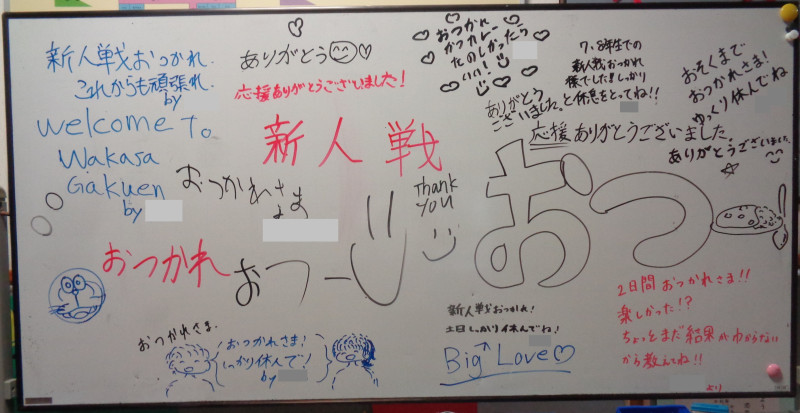 新人戦おつかれ.
これからも頑張れ
by
Welcome To
Wakasa
Gakuen
by
ありがとう
応援ありがとうございました!
新人戦
おつかれさま
おつかれ
おつー
Thank
you
おつかれ
カツカレー
たのしかったら
いい!
7、8年生での
新人戦おつかれ
様でした!!しっかり
と休息をとってね!!
ありがとう
ございました。
応援ありがとうございました.
おそくまで
おつかれさま!
ゆっくり休んでね
ありがとうございました
おつ
おつかれさま.
おつかれさま!
しっかり休んで!
by
新人戦おつかれ!
土日しっかり休んでね!
Big Love
2日間おつかれさま!!
楽しかった!?
ちょっとまだ結果がわからない
から教えてね!!
より